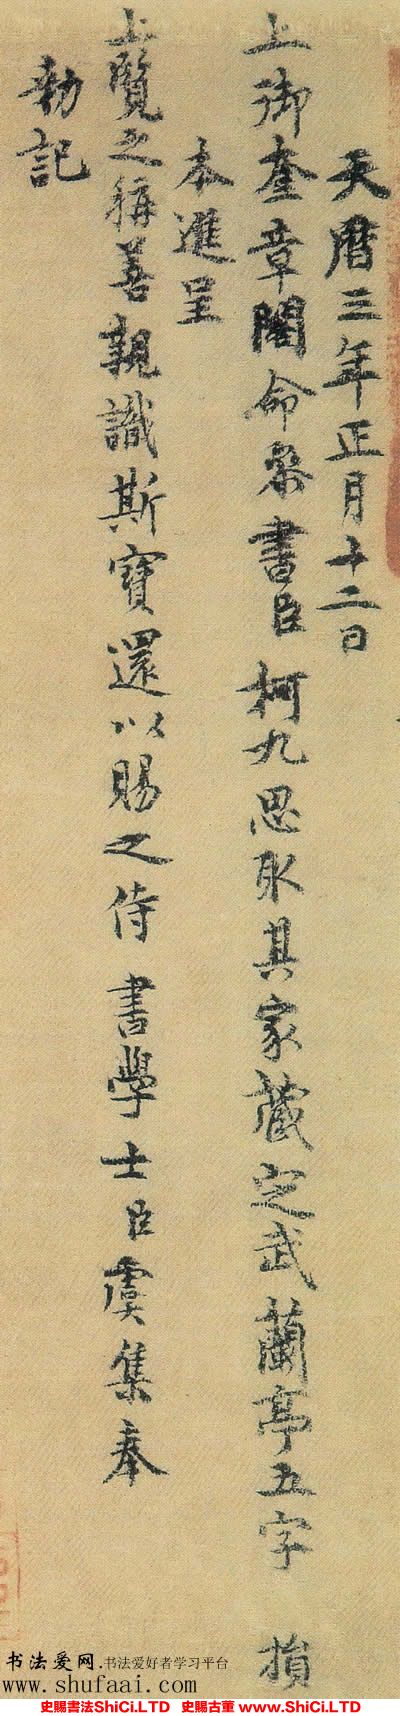 天曆三年正月十二日
上御奎章閣命參書臣柯九思取其家藏定武蘭亭五字損
本進呈
上覽之稱善親識斯寶還以賜之侍書學士臣虞集奉
勅記
书法爱网.书法爱好者学习平台
www.shufaai.com
史賜書法ShiCi.LTD 史賜古董 www.ShiCi.LTD